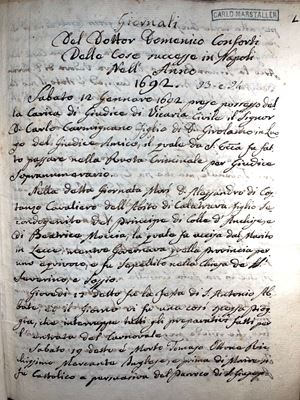 CARLO MARSTALLER
Giornali
Del Dottor Domenico Conforti
Delle Cose successe in Napoli
Nell' Anno
1692.
Sabato 12 Gennaro 1692 prese possesso del
la Carica di Giudice di Vicaria Civile il Signor
D. Carlo Carmignano figlio di D. Girolamo in luo
go del Giudice Amico, il quale da S. Ecc.a fu fat
to passare nella Rovota Criminale per Giudice
Sopranumerario.
Nella detta Giornata Morì D. Alessandro di Co
stanzo Cavaliero dell' Abito di Calatrava figlio se
condogenito del Principe di Colle d' Anchise, e
di Beatrice Moccia, la quale fu uccisa dal Marito
in Lecce, mentre Governava quella Provincia per
uno, e fu sepellito nella Chiesa de SS.
Severino, e Sossio.
Giovedì 17 detto fu la festa di S. Antonio Ab
bate, ed il Giorno vi fù una così spessa piog
gia, che interruppe tutti gli preparativi fatti per
l'entrata del Carnovale.
Sabato 19 detto è Morto Tomaso Ric
chissimo Mercante Inglese, e prima di Morire si
fè Cattolico a persuasiva del Parroco di S. Giuseppe